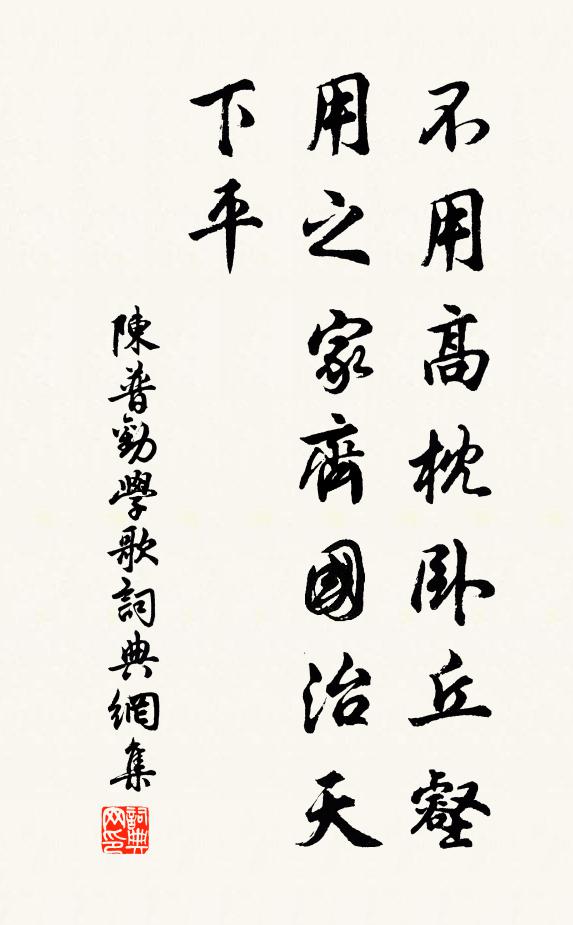 不用高枕卧丘壑
用之家齊國治天
下平
陳普勸學歌詞典網集
詞典网印